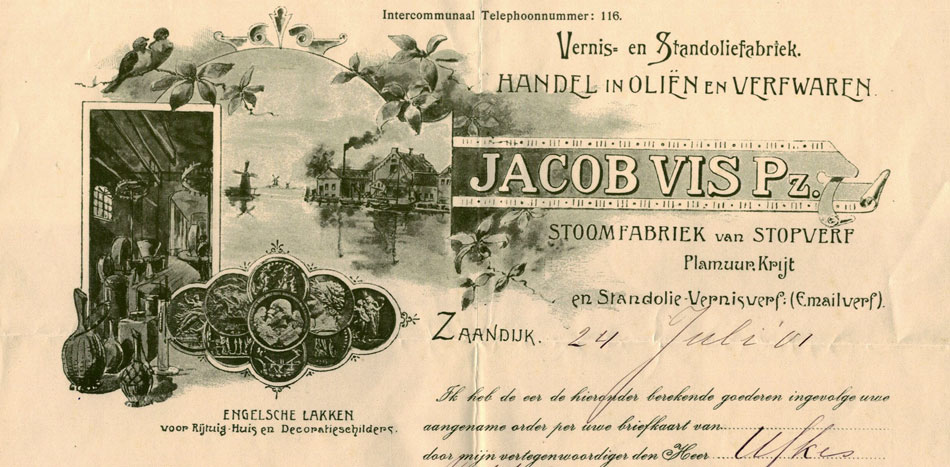 Intercommunaal Telephoonnummer: 116.
Vernis- en Standoliefabriek.
HANDEL IN OLIËN EN VERFWAREN.
JACOB VIS Pz.
STOOMFABRIEK van STOPVERF
Plamuur, Krijt
en Standolie-Vernisverf: (Emailverf).
ZAANDIJK. 24 Juli '01
Ik heb de eer de hieronder berekende goederen ingevolge uwe
aangename order per uwe briefkaart van
door mijn vertegenwoordiger den Heer
ENGELSCHE LAKKEN
voor Rijtuig-Huis en Decoratieschilders.